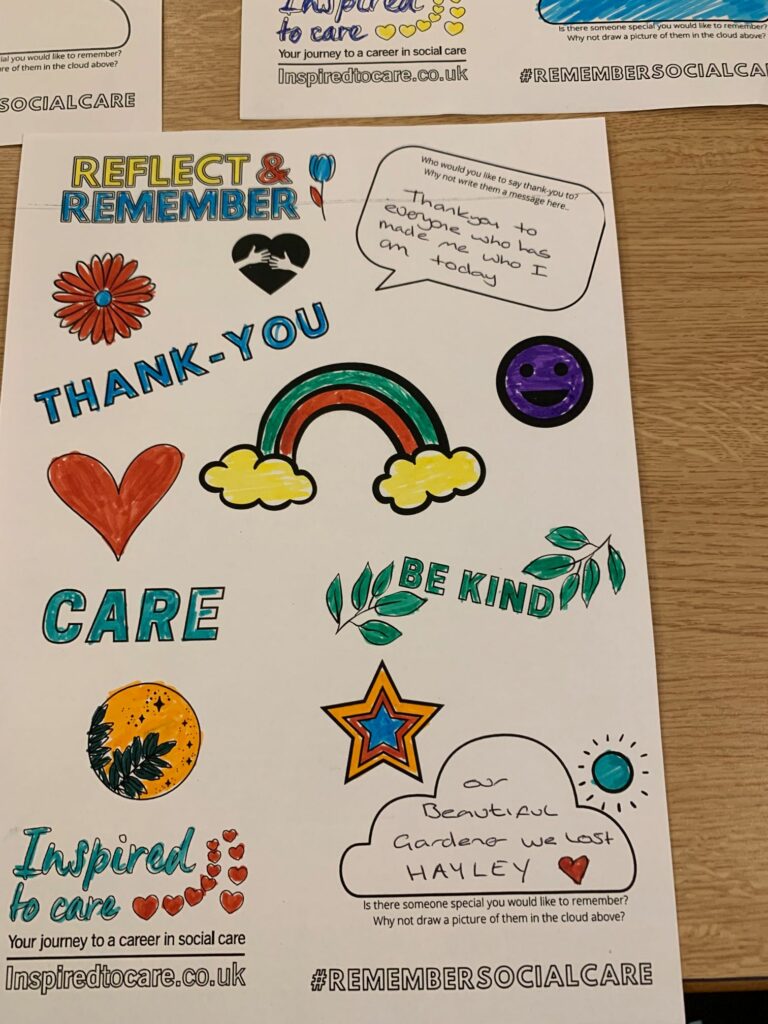 ial you would like to remember?
re of them in the cloud above?
SOCIALCARE
Inspired
to care
Your journey to a career in social care
Inspiredtocare.co.uk
Is there someone special you would like to remember?
Why not draw a picture of them in the cloud above?
#REMEMBERSOCIALCA
REFLECT &
REMEMBER
Who would you like to say thank-you to?
Why not write them a message here..
Thankyou to
everyone who has
made me who I
am today
THANK-YOU
CARE
BE KIND
our
Beautiful
Gardener we lost
HAYLEY
Is there someone special you would like to remember?
Why not draw a picture of them in the cloud above?
Inspired
to care
Your journey to a career in social care
Inspiredtocare.co.uk
#REMEMBERSOCIALCARE